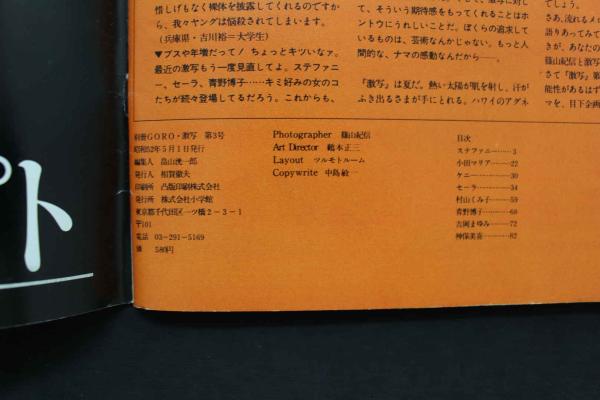 惜しげもなく裸体を披露してくれるのですか
ら、我々ヤングは悩殺されてしまいます。
(兵庫県・古川裕＝大学生)
▼ブスや年増だって！ ちょっとキツいなァ。
最近の激写もう一度見直してよ。ステファニ
ー、セーラ、青野博子……キミ好みの女のコ
たちが続々登場してるだろう。これからも、
て、そういう期待感をもってくれることはホ
ントウにうれしいことだ。ぼくらの追求して
いるものは、芸術なんかじゃない。もっと人
間的な、ナマの感動なんだから——。
『激写』は夏だ。熱い太陽が肌を射し、汗が
ふき出るさまが手にとれる。ハワイのアグネ
でしょう。
さあ、流れるメロ
語りあってみて
きが、あなたの
篠山紀信と激写
さて『激写』第
能性があるはず
マを、目下企画
別冊GORO・激写 第3号
昭和52年5月1日発行
編集人 畠山洸一郎
発行人 相賀徹夫
印刷所 凸版印刷株式会社
発行所 株式会社小学館
東京都千代田区一ツ橋2－3－1
〒101
電話 03-291-5169
価 580円
Photographer 篠山紀信
Art Director 鶴本正三
Layout ツルモトルーム
Copywrite 中島敏一
目次
ステファニー………3
小田マリア………22
ケニー………30
セーラ………34
村山くみ子………59
青野博子………68
吉岡まゆみ………72
神保美喜………82
ト